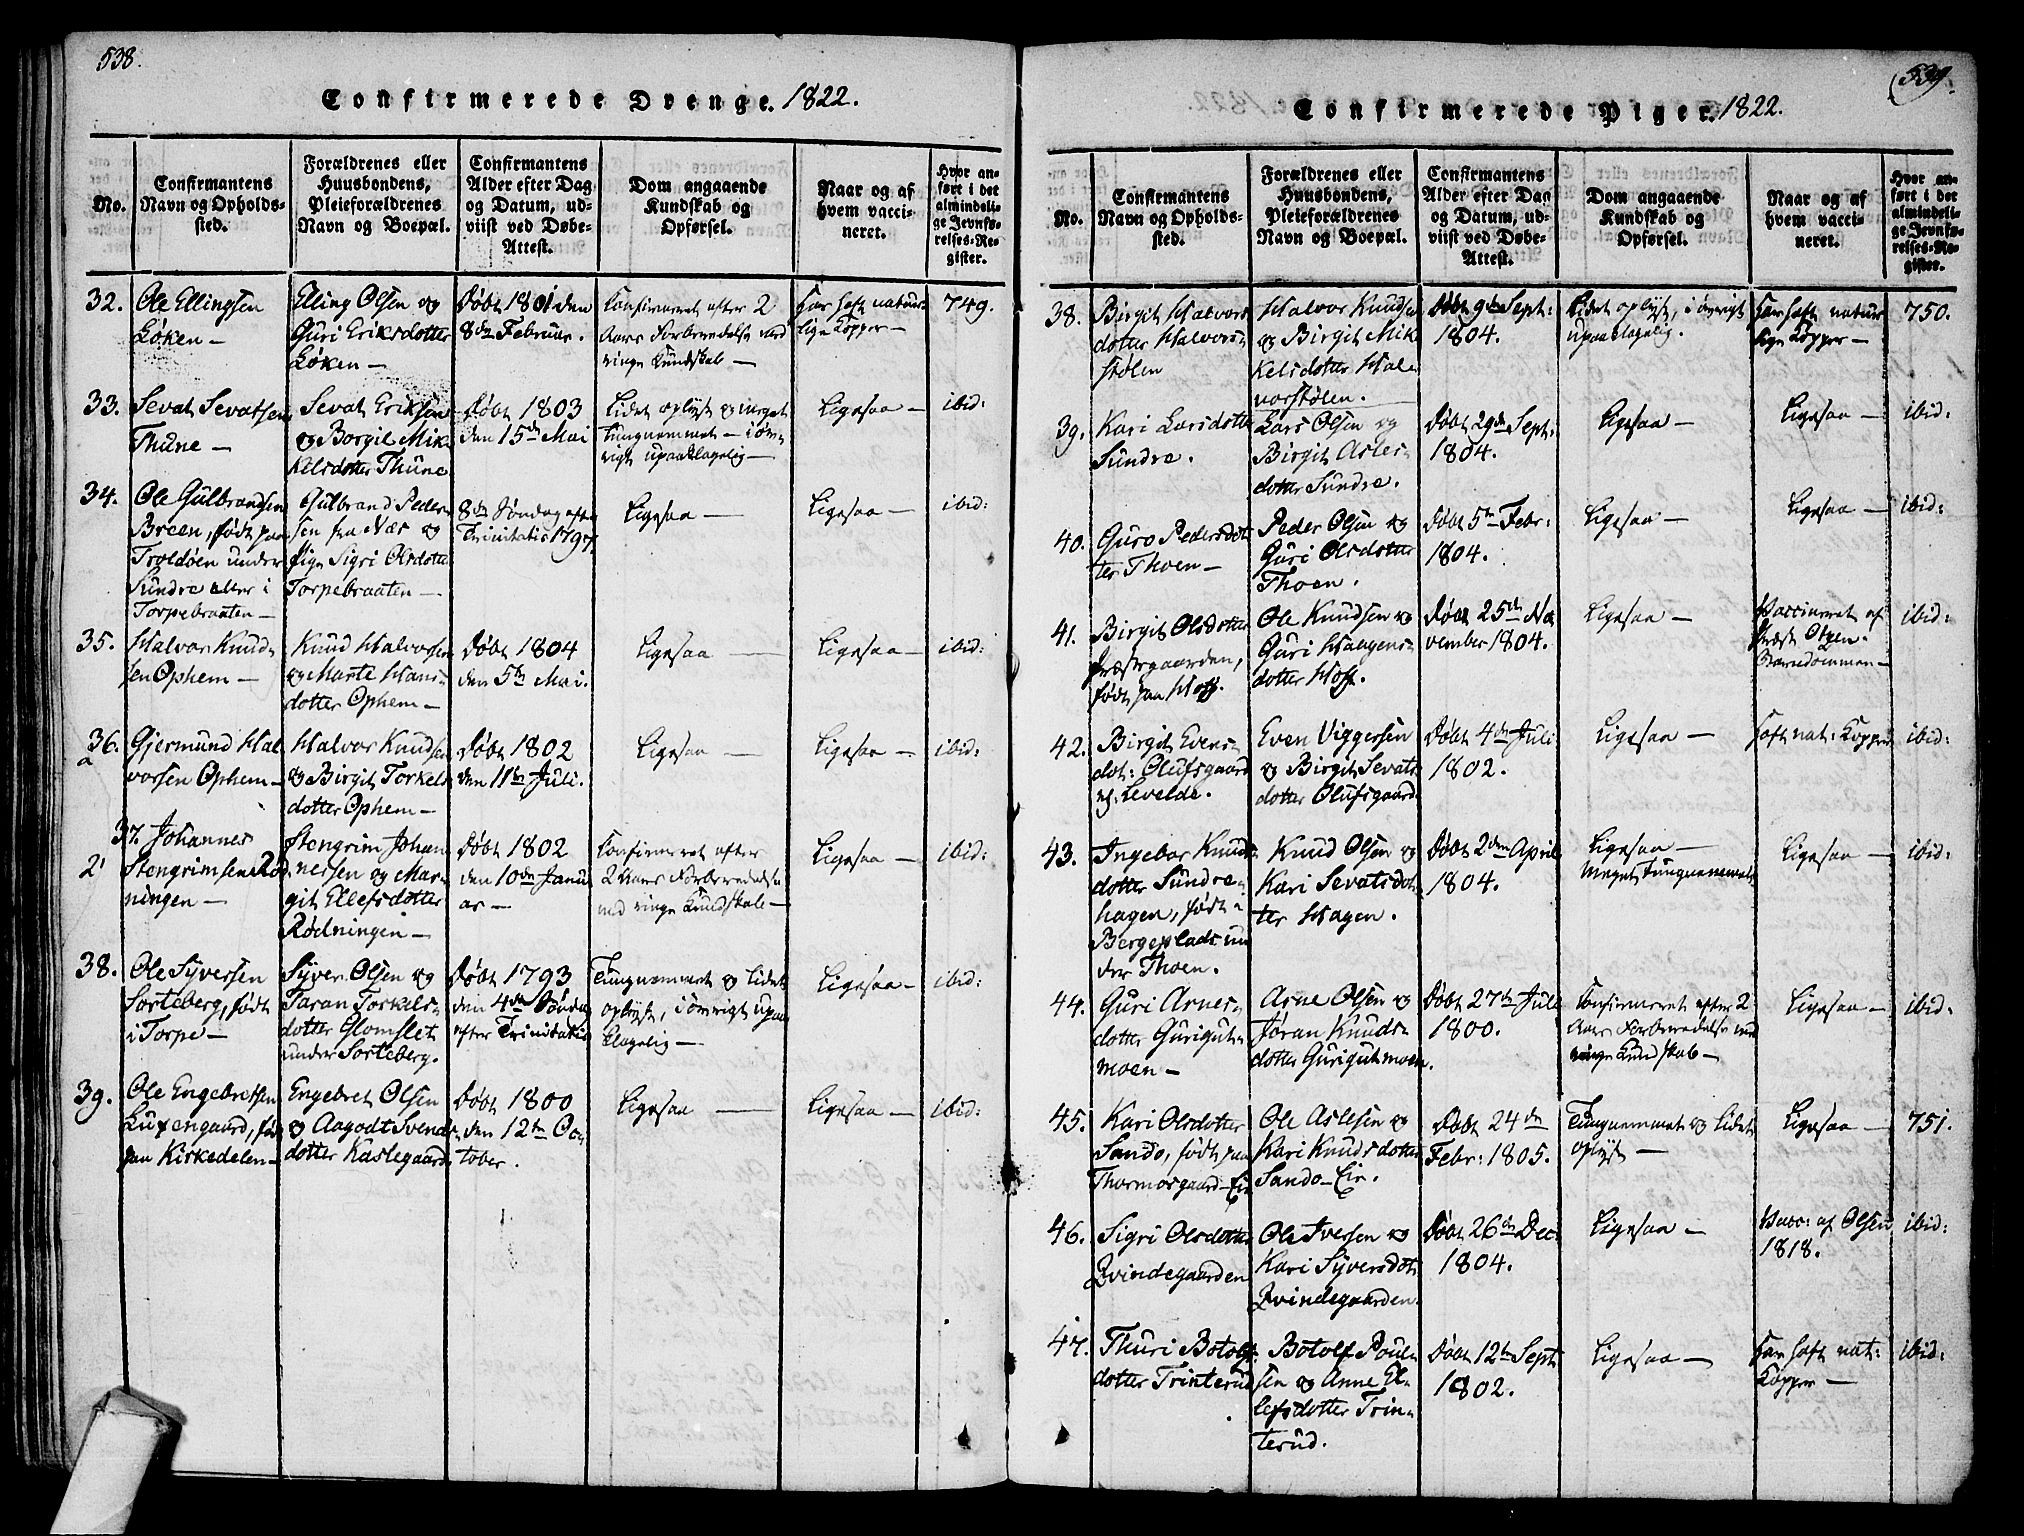 538.
Confirmerede Drenge. 1822.
No.
Confirmantens
Navn og Opholds-
sted.
Forældrenes eller
Huusbondens,
Pleieforældrenes
Navn og Boepæl.
Confirmantens
Alder efter Dag
og Datum, ud-
viist ved Døbe-
Attest.
Dom angaaende
Kundskab og
Opførsel.
Naar og af
hvem vacci-
neret.
Hvor an-
ført i det
almindeli-
ge Jevnfø-
relses-Re-
gister.
32.
Ole Ellingsen
Løken —
Elling Olsen og
Guri Eriksdotter
Løken —
Døbt 1801 den
8de Februar.
Confirmeret efter 2
Aars Forberedelse med
ringe Kundskab —
Har haft natur-
lige Kopper —
749.
33.
Sevat Sevatsen
Thune —
Sevat Eriksen
og Borgil Mik-
kelsdotter Thune
Døbt 1803
den 15de Mai
Lidet oplyst og meget
tungnemmet — iøv-
rigt upaaklagelig —
Ligesaa —
ibid:
34.
Ole Gulbrandsen
Breen, født paa
Troldøen under
Sundre eller i
Torpebraaten —
Gulbrand Peder-
sen fra Næs og
Pige Sigri Olsdotter
Torpebraaten —
8de Søndag efter
Trinitatis 1797.
Ligesaa —
Ligesaa —
ibid:
35.
Halvor Knud-
sen Ophem —
Knud Halvorsen
og Marte Hans-
dotter Ophem —
Døbt 1804
den 5te Mai.
Ligesaa —
Ligesaa —
ibid:
36.
a
Gjermund Hal-
vorsen Ophem —
Halvor Knudsen
og Birgit Torkels-
dotter Ophem —
Døbt 1802
den 11te Juli.
Ligesaa —
Ligesaa —
ibid:
37. Johannes
Stengrimsen Rød-
ningen —
Stengrim Johan-
nessen og Mar-
git Ellefsdotter
Rødningen —
Døbt 1802
den 10de Janu-
ar —
Confirmeret efter
2 Aars Forberedelse
med ringe Kundskab —
Ligesaa —
ibid:
38.
Ole Syversen
Sorteberg, født
i Torpe —
Syver Olsen og
Taran Torkels-
dotter Glomslet
under Sorteberg.
Døbt 1793
den 4de Søndag
efter Trinitatis
Tungnemmet og lidet
oplyst, iøvrigt upaa-
klagelig —
Ligesaa —
ibid:
39.
Ole Engebretsen
født
paa Kirkedelen —
Engebret Olsen
og Aagodt Svends-
dotter Kaslegaard
Døbt 1800
den 12te Oc-
tober.
Ligesaa —
Ligesaa —
ibid:
539.
Confirmerede Piger. 1822.
No.
Confirmantens
Navn og Opholds-
sted.
Forældrenes eller
Huusbondens,
Pleieforældrenes
Navn og Boepæl.
Confirmantens
Alder efter Dag
og Datum, ud-
viist ved Døbe-
Attest.
Dom angaaende
Kundskab og
Opførsel.
Naar og af
hvem vacci-
neret.
Hvor an-
ført i det
almindeli-
ge Jevnfø-
relses-Re-
gister.
38.
Birgit Halvors-
dotter Halvor-
stølen
Halvor Knudsen
og Birgit Mik-
kelsdotter Hal-
vorstølen.
Døbt 9de Sept:
1804.
Lidet oplyst, iøvrigt
upaaklagelig.
Har haft natur-
lige Kopper —
750.
39.
Kari Larsdotter
Sundre.
Lars Olsen og
Birgit Asles-
dotter Sundre.
Døbt 29de Sept:
1804.
Ligesaa —
Ligesaa —
ibid:
40.
Guro Pedersdot-
ter Thoen —
Peder Olsen og
Guri Olsdotter
Thoen.
Døbt 5te Febr:
1804.
Ligesaa —
Ligesaa —
ibid:
41.
Birgit Olsdotter
Præstegaarden,
født paa Hoff.
Ole Knudsen og
Guri Haagens-
dotter Hoff.
Døbt 25de No-
vember 1804.
Ligesaa —
Vaccineret af
Præst
Barndommen —
ibid:
42.
Birgit Evens-
dot: Olufsgaard
Levelde.
Even Viggersen
og Birgit Sevats-
dotter Olufsgaard.
Døbt 4de Juli
1802.
Ligesaa —
Haft nat: Kopper
ibid:
43.
Ingebor Knuds-
dotter Sundre-
hagen, født
Bergeplads un-
der Thoen.
Knud Olsen og
Kari Sevatsdot-
ter Hagen.
Døbt 2den April
1804.
Ligesaa —
Meget Tungnemmet
Ligesaa —
ibid:
44.
Guri Arnes-
dotter Gurigut-
moen —
Arne Olsen og
Jøran Knuds-
dotter Gurigutmoen.
Døbt 27de Juli
1800.
Confirmeret efter 2
Aars Forberedelse med
ringe Kundskab —
Ligesaa —
ibid:
45.
Kari Olsdotter
Sando, født paa
Thormosgaard-Eie
Ole Aslesen og
Kari Knudsdotter
Sando-Eie.
Døbt 24de
Febr: 1805.
Tungnemmet og lidet
oplyst —
Ligesaa —
751.
46.
Sigri Olsdotter
Qvindegaarden
Ole Iversen og
Kari Syversdot-
Qvindegaarden.
Døbt 26de Dec:
1804.
Ligesaa —
Vacc: af Olsen
1818.
ibid:
47.
Thuri Botolf-
dotter Trinterud
Botolf Poul-
sen og Anne El-
lefsdotter Trin-
terud.
Døbt 12te Sept:
1802.
Ligesaa —
Har haft nat:
Kopper —
ibid: